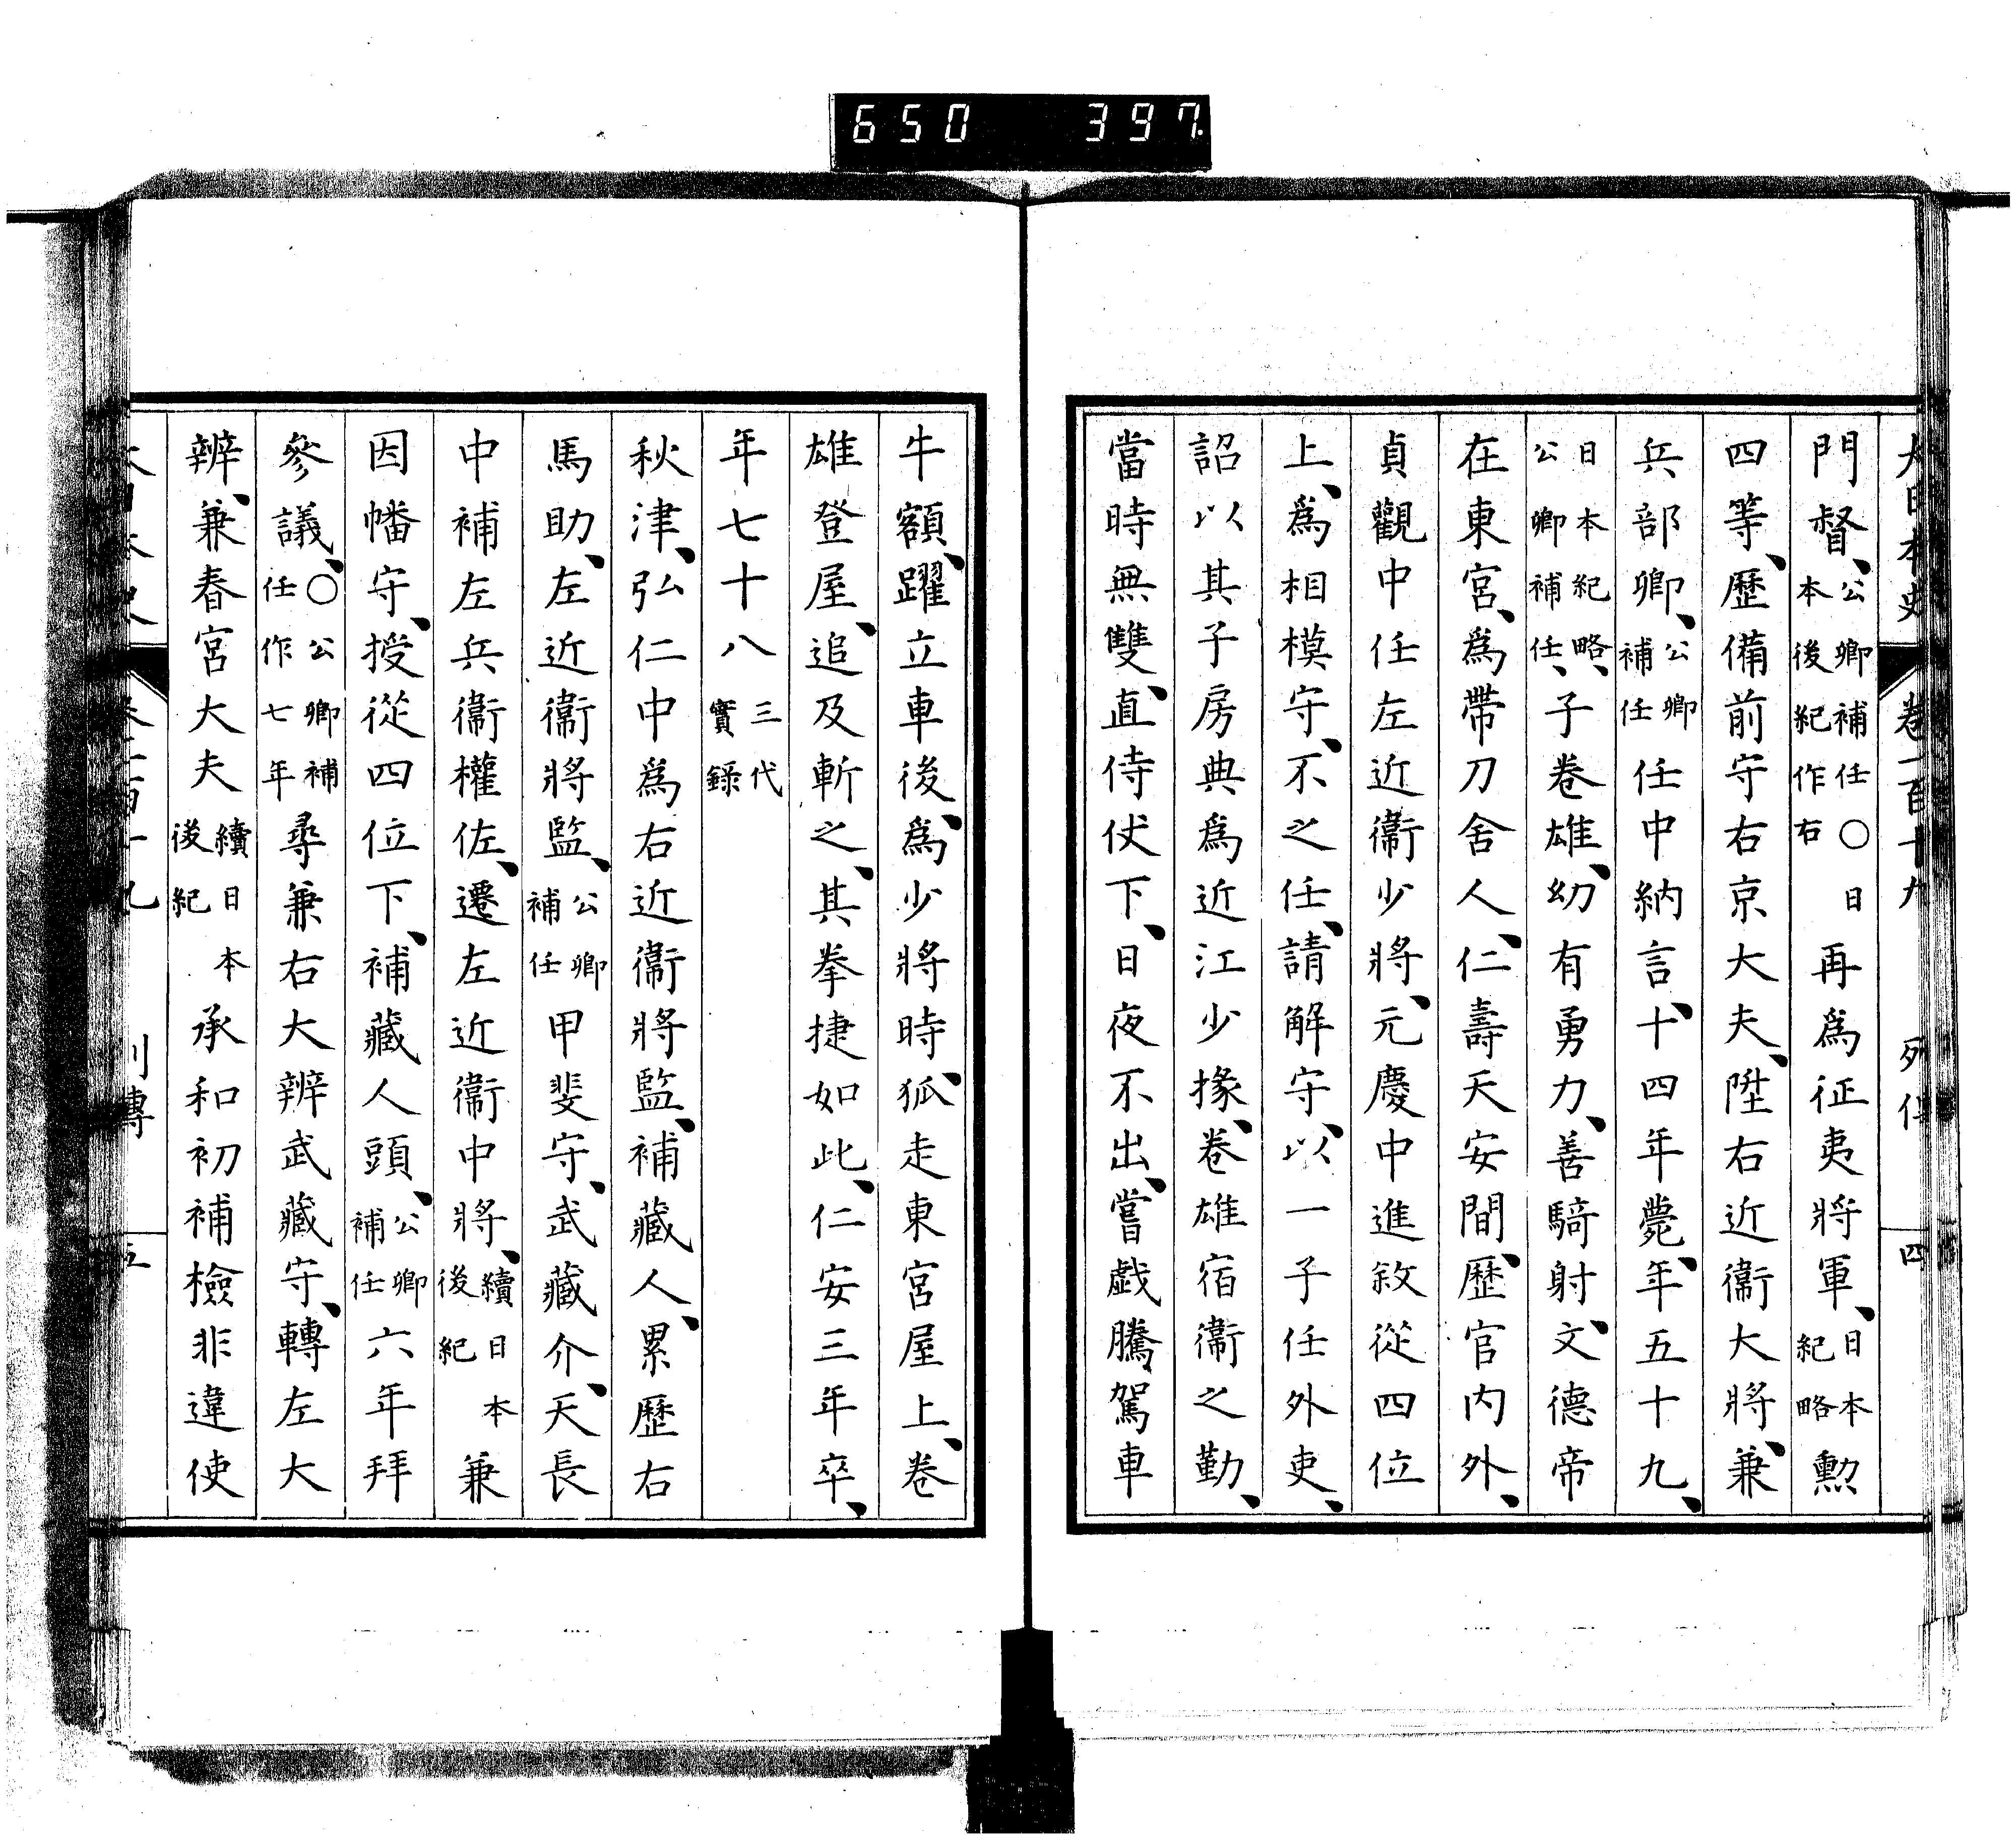 650 397.
大日本史 卷一百十九 列傳 四
門督、公卿補任〇日本後紀作右再爲征夷將軍、日本紀略勲
四等、歷備前守右京大夫、陞右近衞大將、兼
兵部卿、公卿補任任中納言、十四年薨、年五十九、
日本紀略、公卿補任、子卷雄、幼有勇力、善騎射、文德帝
在東宮、爲帶刀舍人、仁壽天安間、歷官内外、
貞觀中任左近衞少將、元慶中進敘從四位
上、爲相模守、不之任、請解守、以一子任外吏、
詔以其子房典爲近江少掾、卷雄宿衞之勤、
當時無雙、直侍仗下、日夜不出、嘗戲騰駕車
牛額、躍立車後、爲少將時、狐走東宮屋上、卷
雄登屋、追及斬之、其拳捷如此、仁安三年卒、
年七十八三代實錄
秋津、弘仁中爲右近衞將監、補藏人、累歷右
馬助、左近衞將監、公卿補任甲斐守、武藏介、天長
中補左兵衞權佐、遷左近衞中將、續日本後紀兼
因幡守、授從四位下、補藏人頭、公卿補任六年拜
參議、〇公卿補任作七年尋兼右大辨武藏守、轉左大
辨、兼春宮大夫續日本後紀承和初補檢非違使